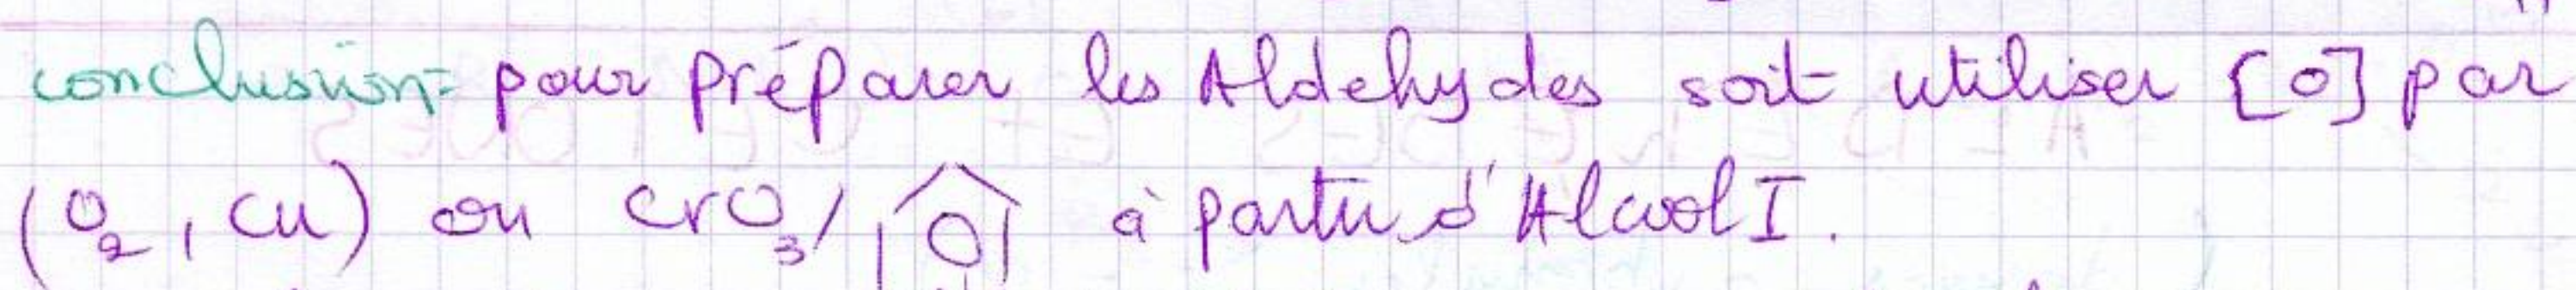 conclusion= pour préparer les Aldehydes soit utiliser [o] par
(O₂, Cu) ou CrO₃/ à partir d'Alcool I.